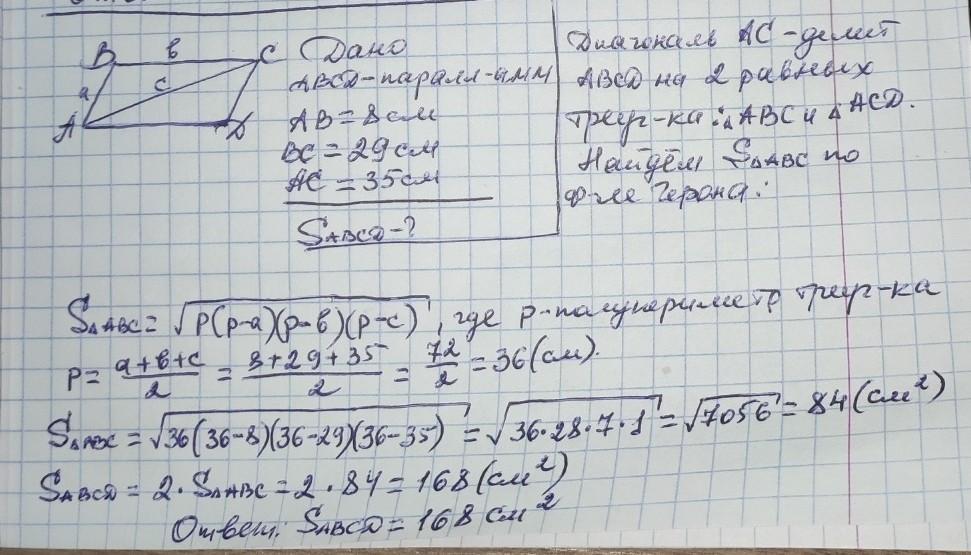 B в C
a c
A D
Дано
ABCD-паралл-амм
AB = 8 см
BC = 29 см
AC = 35 см
SABCD-?
Диагональ AC - делит
ABCD на 2 равных
треуг-ка: △ABC и △ACD.
Найдём S△ABC по
ф-ле Герона:
S△ABC = √P(p-a)(p-в)(p-c), где p-полупериметр треуг-ка
P = a+в+c/2 = 8+29+35/2 = 72/2 = 36 (см).
S△ABC = √36(36-8)(36-29)(36-35) = √36·28·7·1 = √7056 = 84 (см²)
SABCD = 2·S△ABC = 2·84 = 168 (см²)
Ответ: SABCD = 168 см²